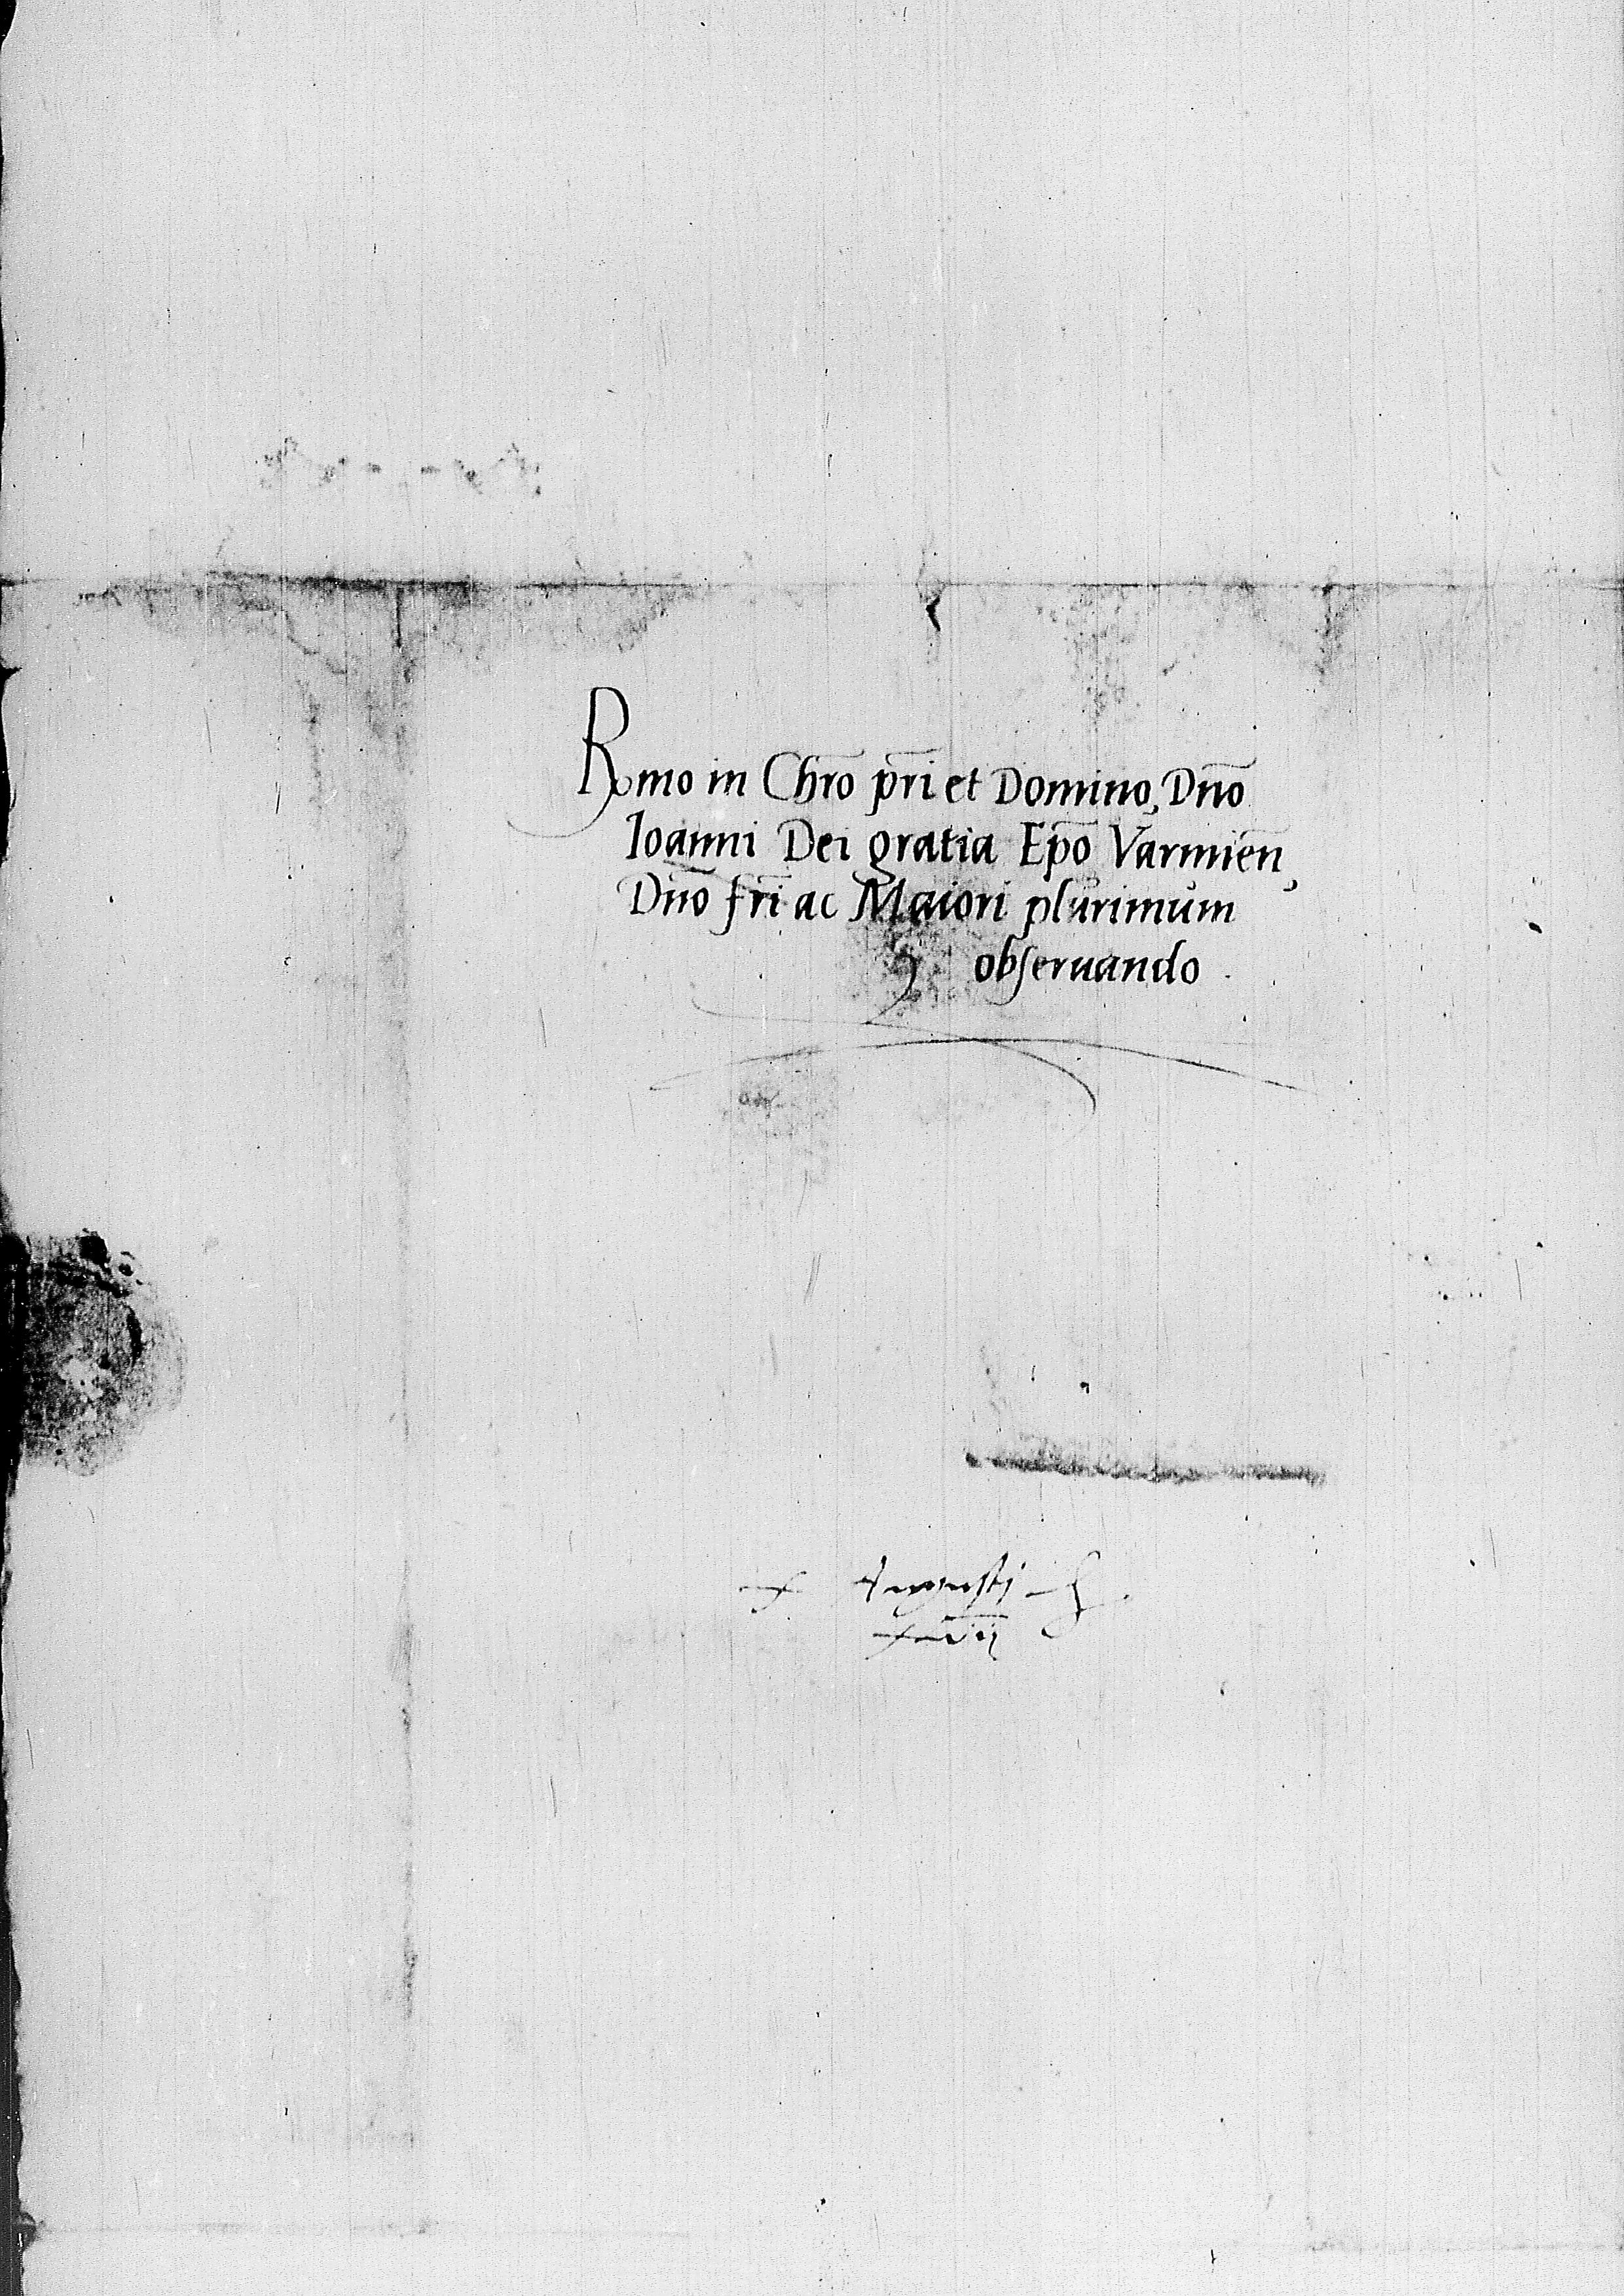 Rmo in Chr̄o pr̄i et Domino, Dn̄o
Ioanni Dei gratia Ep̄o Varmien̄,
Dn̄o fr̄i ac Maiori plurimum
obseruando.
x Augusti
xvii